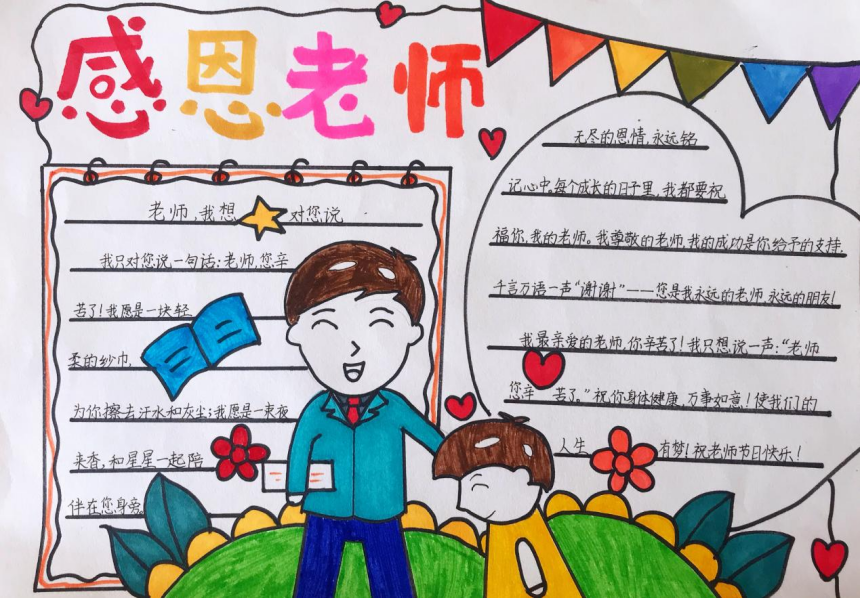 感恩老师
老师,我想对您说
我只对您说一句话:老师,您辛
苦了!我愿是一块轻
柔的纱巾,
为你擦去汗水和灰尘;我愿是一束夜
来香,和星星一起陪
伴在您身旁。
无尽的恩情,永远铭
记心中。每个成长的日子里,我都要祝
福你,我的老师。我尊敬的老师,我的成功是你给予的支持,
千言万语一声“谢谢”——您是我永远的老师,永远的朋友!
我最亲爱的老师,你辛苦了!我只想说一声:“老师
您辛苦了。”祝你身体健康,万事如意!使我们的
人生有梦!祝老师节日快乐!